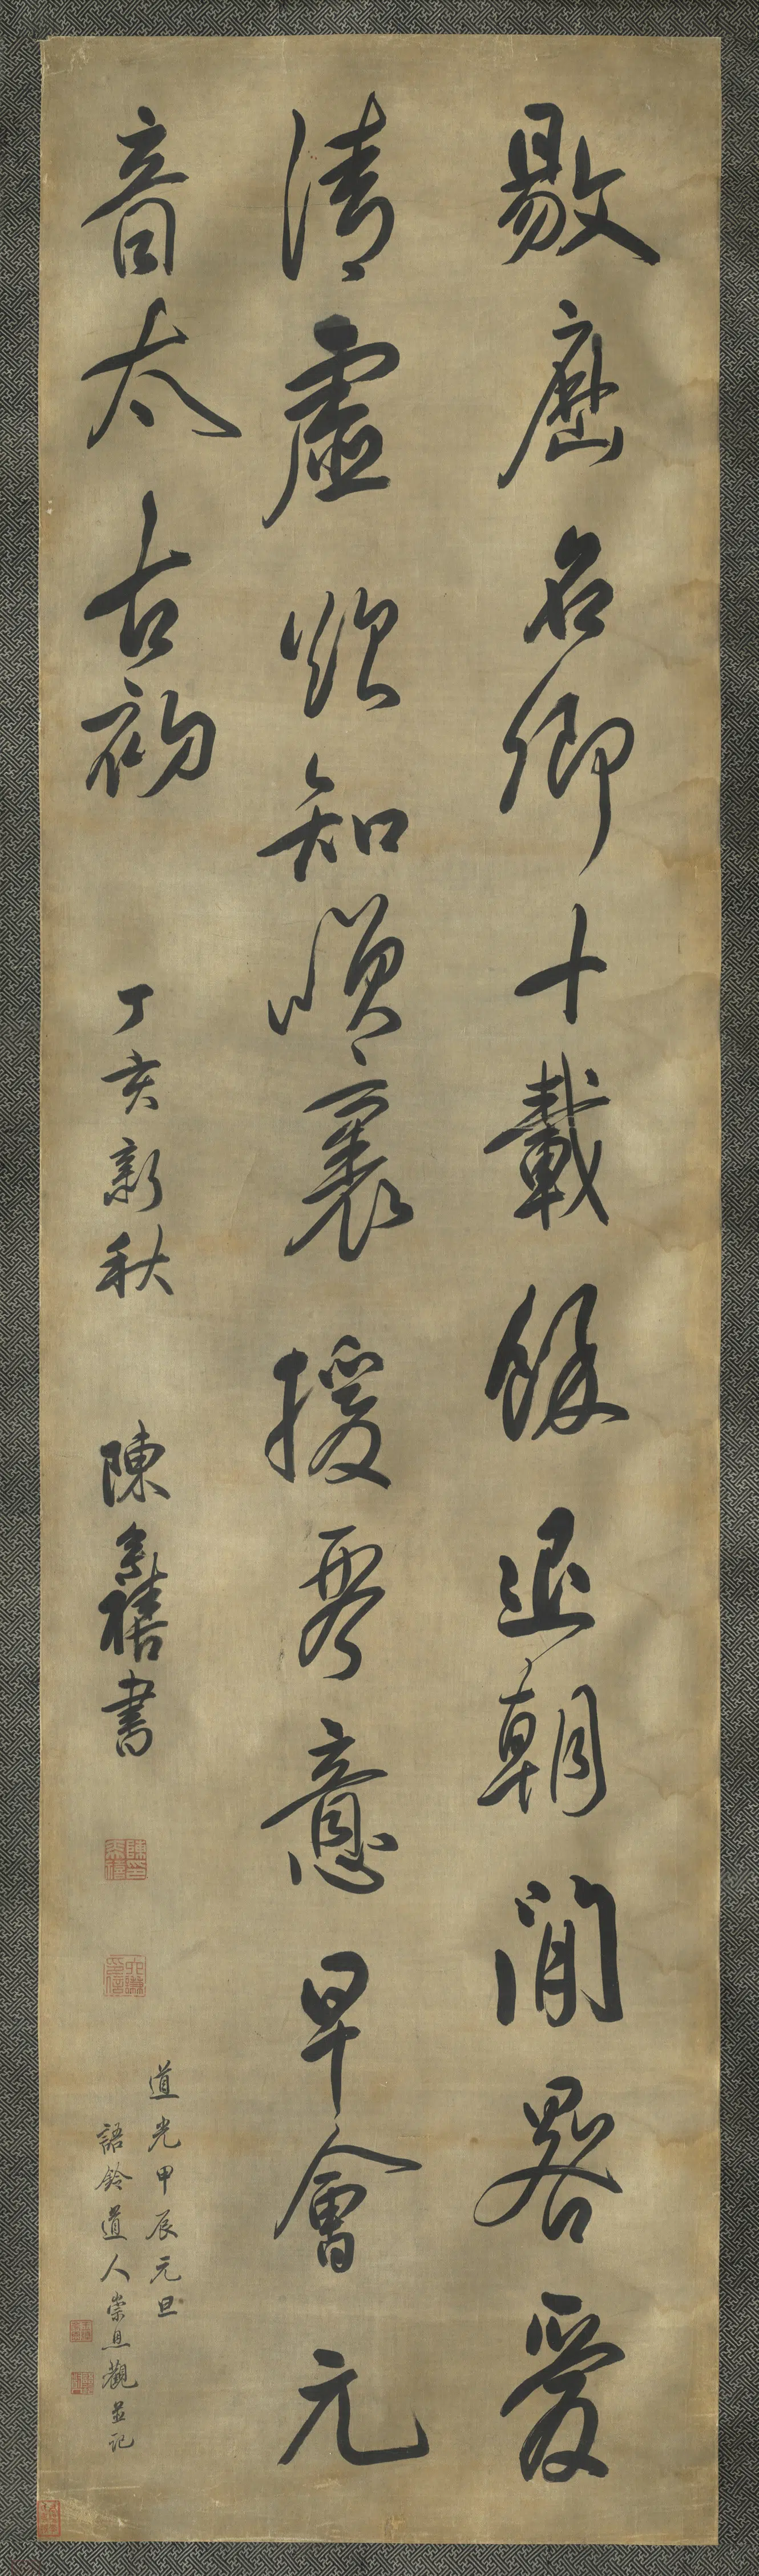 敭歷名卿十載餘退朝閒畧愛
清虛欲知裏援琴意早會元
音太古初
丁亥新秋 陳奕禧書
道光甲辰元旦
語鈴道人崇恩觀並記